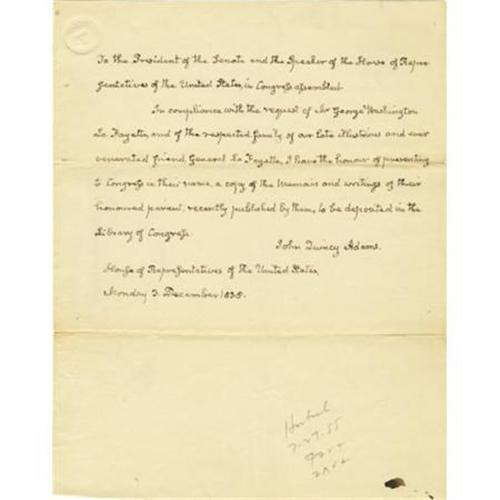 To the President of the Senate and the Speaker of the House of Repre-
sentatives of the United States, in Congress assembled.
In compliance with the request of Mr George Washington
La Fayette, and of the respected family of our late illustrious and ever
venerated friend General La Fayette, I have the honour of presenting
to Congress in their name, a copy of the Memoirs and writings of their
honoured parent, recently published by them, to be deposited in the
Library of Congress.
John Quincy Adams.
House of Representatives of the United States,
Monday 3. December 1838.
7-27-55